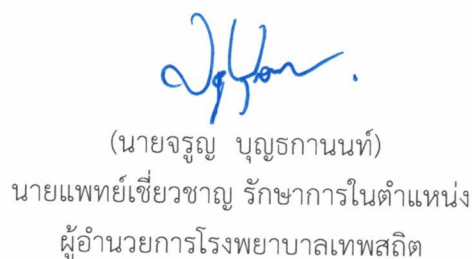 (นายจรูญ บุญธกานนท์)
นายแพทย์เชี่ยวชาญ รักษาการในตำแหน่ง
ผู้อำนวยการโรงพยาบาลเทพสถิต